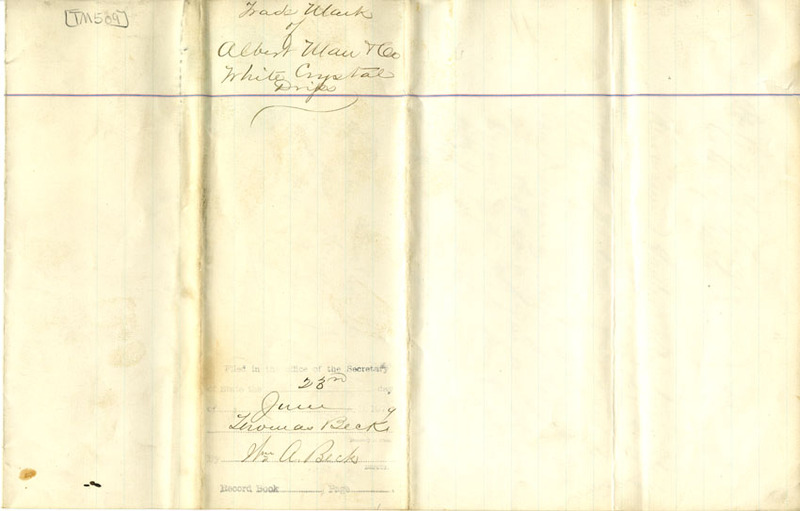 [TM509]
Trade Mark
of
Albert Mau & Co
White Crystal
Drips
Filed in the office of the Secretary
of State the 23rd day
of June 9
Thomas Beck
By Wm A. Beck
Record Book Page